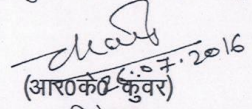 26.07.2016
(आर0के0 कुंवर)